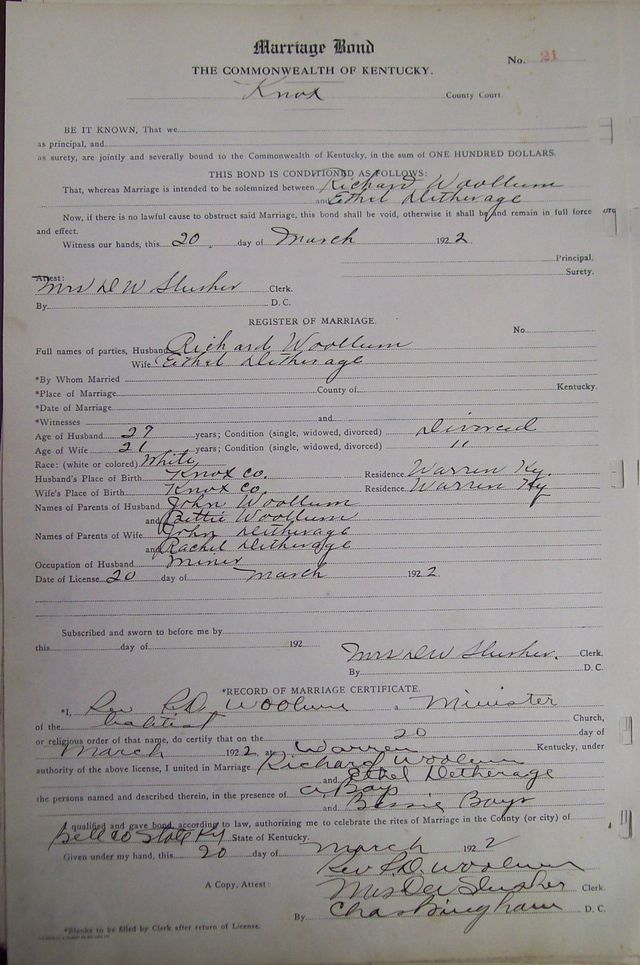 Marriage Bond
No. 21
THE COMMONWEALTH OF KENTUCKY.
Knox County Court
BE IT KNOWN, That we
as principal, and
as surety, are jointly and severally bound to the Commonwealth of Kentucky, in the sum of ONE HUNDRED DOLLARS.
THIS BOND IS CONDITIONED AS FOLLOWS:
That, whereas Marriage is intended to be solemnized between Richard Woollum
and Ethel Detherage
Now, if there is no lawful cause to obstruct said Marriage, this bond shall be void, otherwise it shall be and remain in full force
and effect.
Witness our hands, this 20 day of March 1922
Principal.
Surety.
Attest:
Mrs D W Slusher Clerk.
By D. C.
REGISTER OF MARRIAGE.
No.
Full names of parties, Husband Richard Woollum
Wife Ethel Detherage
*By Whom Married
*Place of Marriage County of Kentucky.
*Date of Marriage
*Witnesses and
Age of Husband 27 years; Condition (single, widowed, divorced) Divorced
Age of Wife 21 years; Condition (single, widowed, divorced) "
Race: (white or colored) White
Husband's Place of Birth Knox Co. Residence Warren Ky.
Wife's Place of Birth Knox Co. Residence Warren Ky
Names of Parents of Husband John Woollum
and Bettie Woollum
Names of Parents of Wife John Detherage
and Rachel Detherage
Occupation of Husband Miner
Date of License 20 day of March 1922
Subscribed and sworn to before me by
this day of 192
Mrs D W Slusher. Clerk.
By D. C.
*RECORD OF MARRIAGE CERTIFICATE.
*I, Rev Woollum a Minister
of the Baptist Church,
or religious order of that name, do certify that on the 20 day of
March 1922 at Warren Kentucky, under
authority of the above license, I united in Marriage Richard Woollum
and Ethel Detherage
the persons named and described therein, in the presence of Bays
and Bessie Bays
I qualified and gave bond, according to law, authorizing me to celebrate the rites of Marriage in the County (or city) of
Bell Co State Ky State of Kentucky.
Given under my hand, this 20 day of March 1922
Rev Woollum
A Copy, Attest: Mrs D W Slusher Clerk.
By Chas Bingham D. C.
*Blanks to be filled by Clerk after return of License.